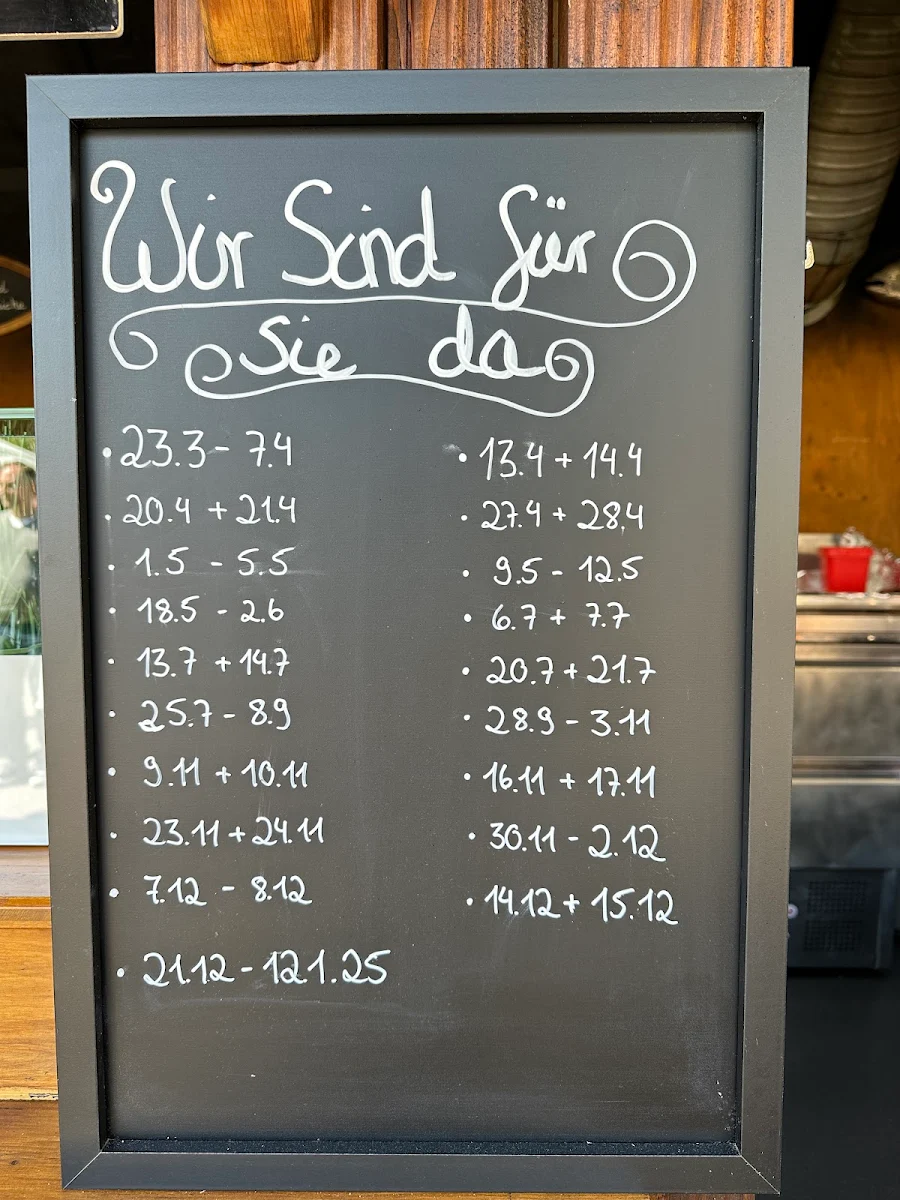 Wir Sind für
Sie da
· 23.3 - 7.4
· 13.4 + 14.4
· 20.4 + 21.4
· 27.4 + 28.4
· 1.5 - 5.5
· 9.5 - 12.5
· 18.5 - 2.6
· 6.7 + 7.7
· 13.7 + 14.7
· 20.7 + 21.7
· 25.7 - 8.9
· 28.9 - 3.11
· 9.11 + 10.11
· 16.11 + 17.11
· 23.11 + 24.11
· 30.11 - 2.12
· 7.12 - 8.12
· 14.12 + 15.12
· 21.12 - 12.1.25